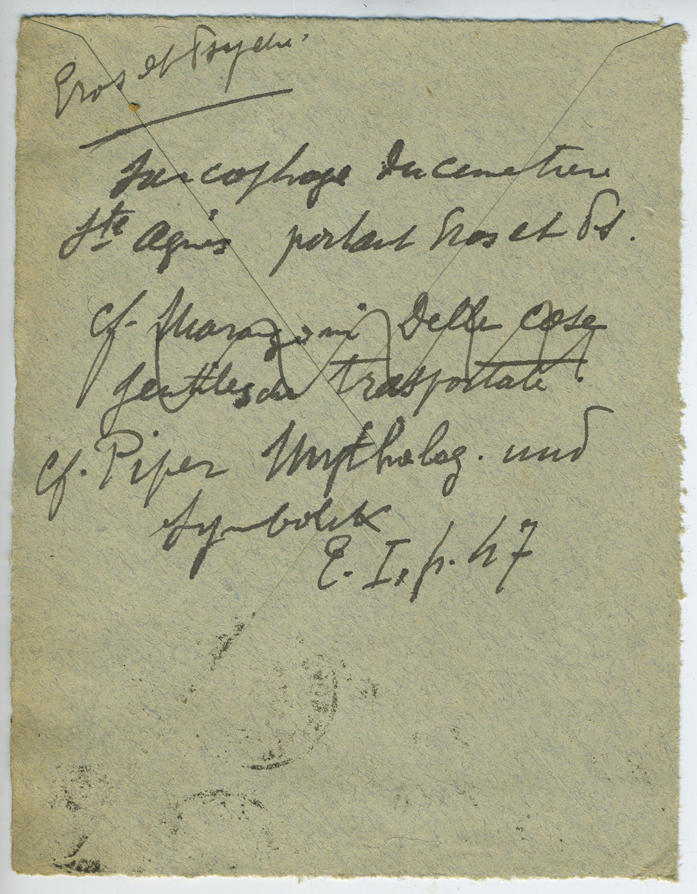 Eros et Psyche.
Sarcophage du cemetiere
Ste Agnès portant Eros et Ps.
cf. Marangoni Delle cose
gentilesche trasportate.
cf. Piper Mytholog. und
Symbolik
E. I, p. 47